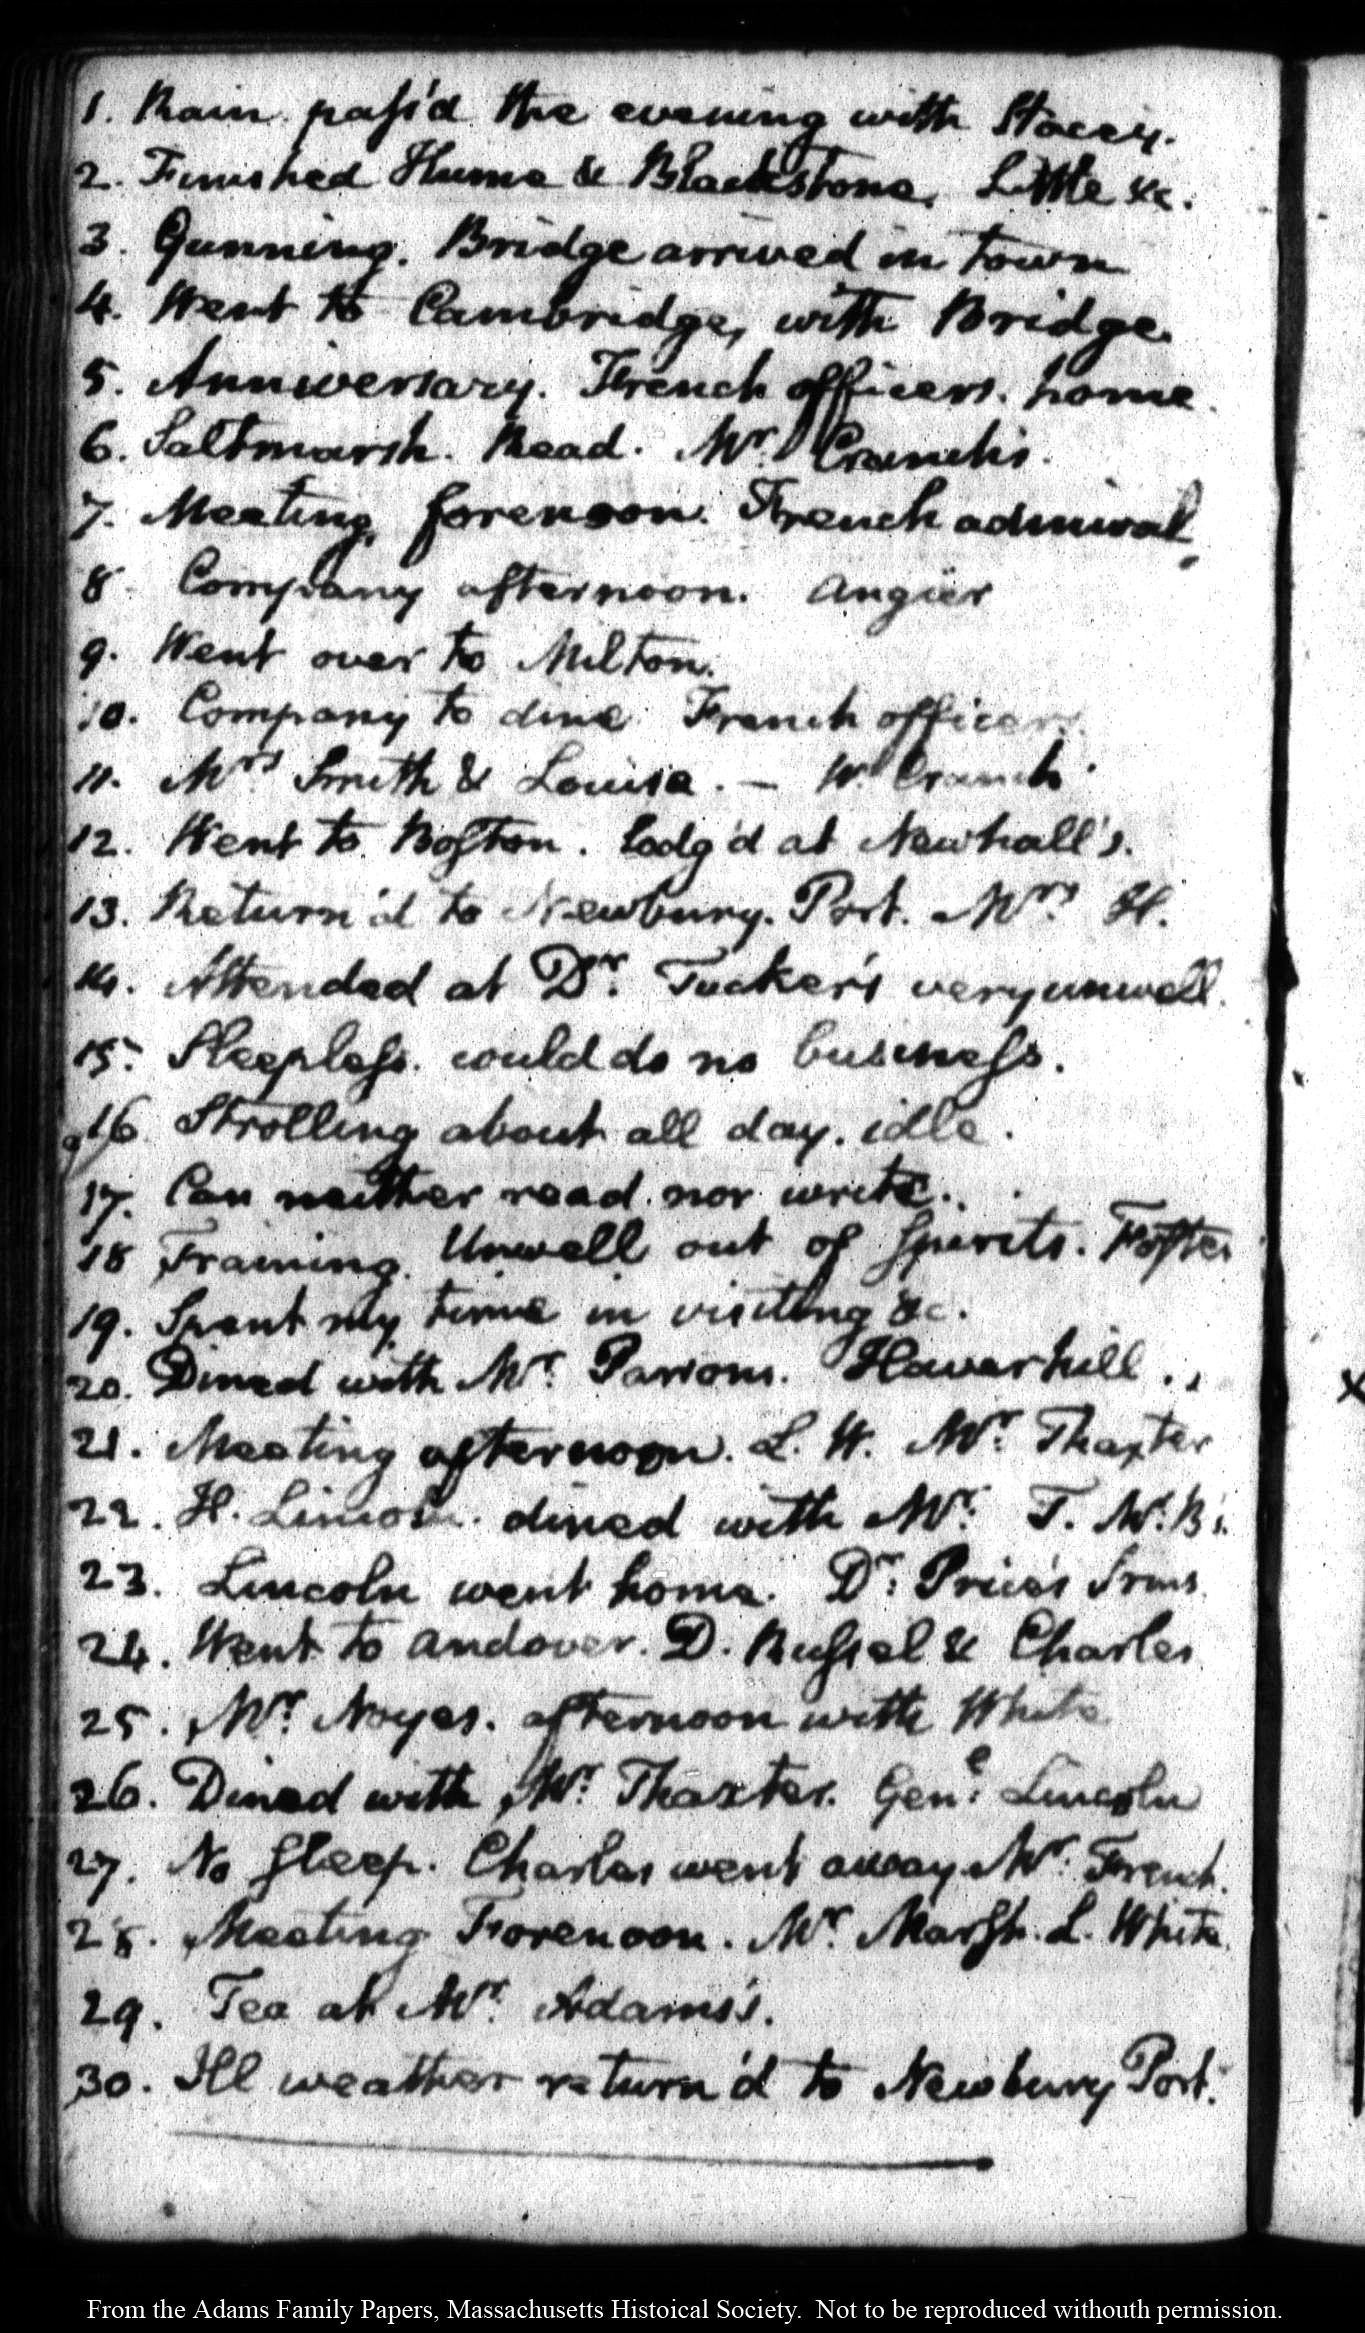 1. Rain. pass'd the evening with Stacey.
2. Finished Hume & Blackstone. Little &c.
3. Gunning. Bridge arrived in town
4. Went to Cambridge, with Bridge.
5. Anniversary. French officers. home.
6. Saltmarsh. Read. Mr. Cranch's.
7. Meeting, forenoon. French admiral.
8 Company afternoon. Angier
9. Went over to Milton.
10. Company to dine. French officers.
11. Mrs Smith & Louisa. — W. Cranch.
12. Went to Boston. Lodg'd at Newhall's.
13. Return'd to Newbury-Port. Mrs. H.
14. Attended at Dr. Tucker's very unwell.
15. Sleepless. could do no business.
16 Strolling about all day. idle.
17. Can neither read nor write.
18 Training. Unwell out of spirits. Foster
19. Spent my time in visiting &c.
20. Dined with Mr. Parsons. Haverhill.
21. Meeting afternoon. L. W. Mr. Thaxter
22. H. Lincoln. dined with Mr. T. Mr. B's.
23. Lincoln went home. Dr. Price's Srms.
24. Went to Andover. D. Russel & Charles
25. Mr. Noyes. afternoon with White
26. Dined with Mr. Thaxter. Gene. Lincoln
27. No sleep. Charles went away. Mr. French.
28. Meeting Forenoon. Mr. Marsh. L. White.
29. Tea at Mr. Adams's.
30. Ill weather return'd to Newbury Port.
From the Adams Family Papers, Massachusetts Histoical Society. Not to be reproduced withouth permission.